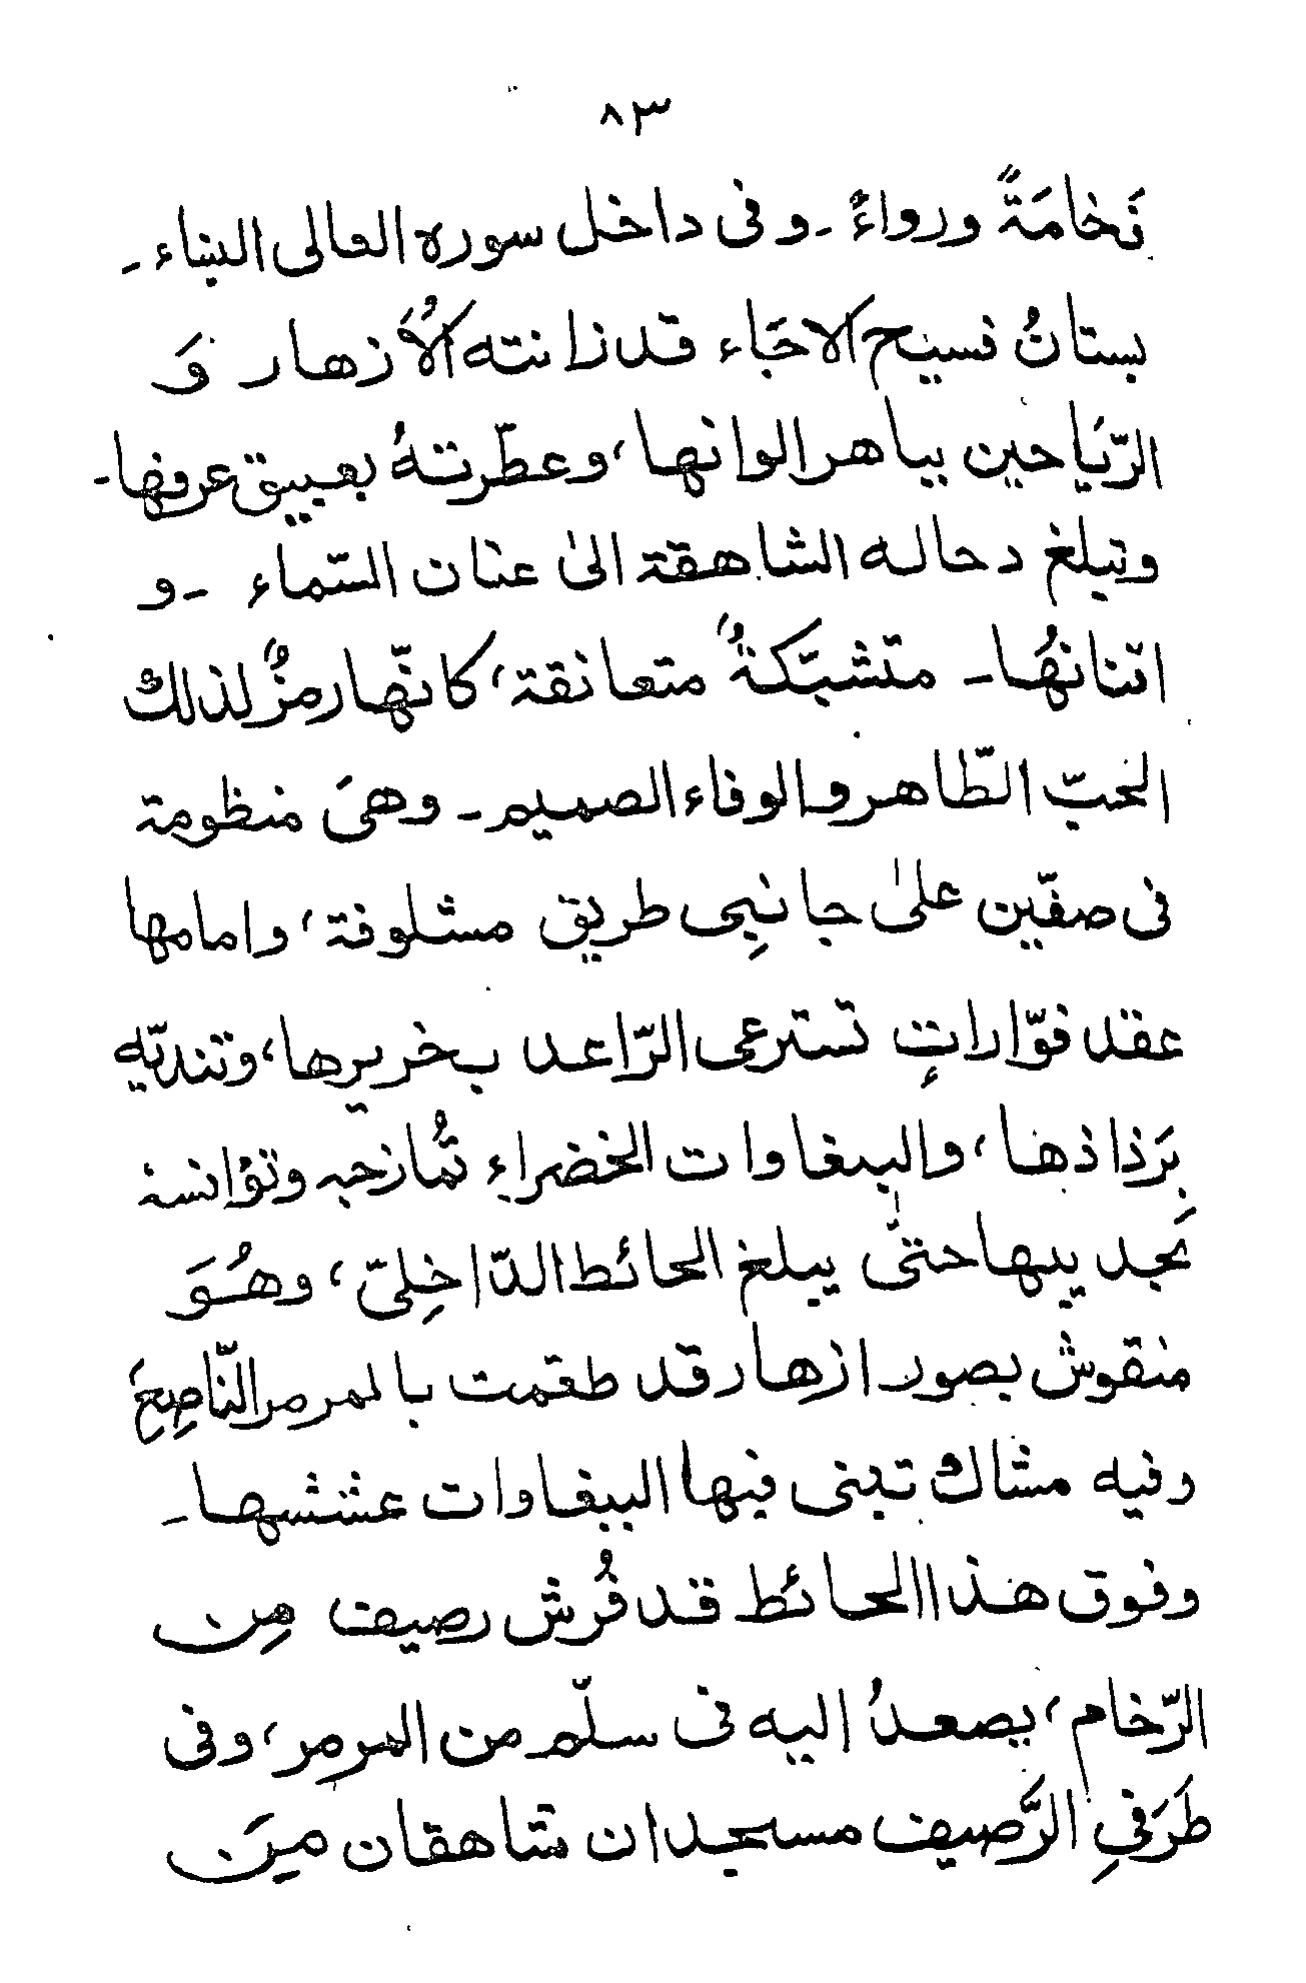 ٨٣
فَخامَةً ورواءً ـ وفى داخل سوره العالى البناء ـ
بستانُ فسيح الارجَاء قد زانته الأُزهار وَ
الرّيَاحين بباهر الوانها، وعطّرتهُ بعبيق عرفها ـ
وتبلغ دحاله الشاهقة الىٰ عنان السّماء ـ و
افنانهُا ـ متشبّكةٌ متعانقة، كانّها رمزٌ لذلك
الحبّ الطّاهر والوفاء الصميم ـ وهىَ منظومة
فى صفّين علىٰ جانبِى طريق مشلوفة، وامامها
عقد فوّاراتٍ تسترعى الرّاعد بخريرها، وتندّيه
بَرذاذها، والببغاوات الخضراءِ تُمازحه وتؤانسه
بَجدييها حتىّٰ يبلغ الحائط الدّاخِلىّ، وهُوَ
منقوش بصور ازهار قد طقمت بالمرمر النّاصِعَ
وفيه مشاك تبنى فيها الببغاوات عششها ـ
وفوق هذا الحائط قد فُرش رصيف مِن
الرّخام، يصعدُ اليه فى سلّم من المرمر، وفى
طَرَفىِ الرَّصيف مسجدان شاهقان مِنَ